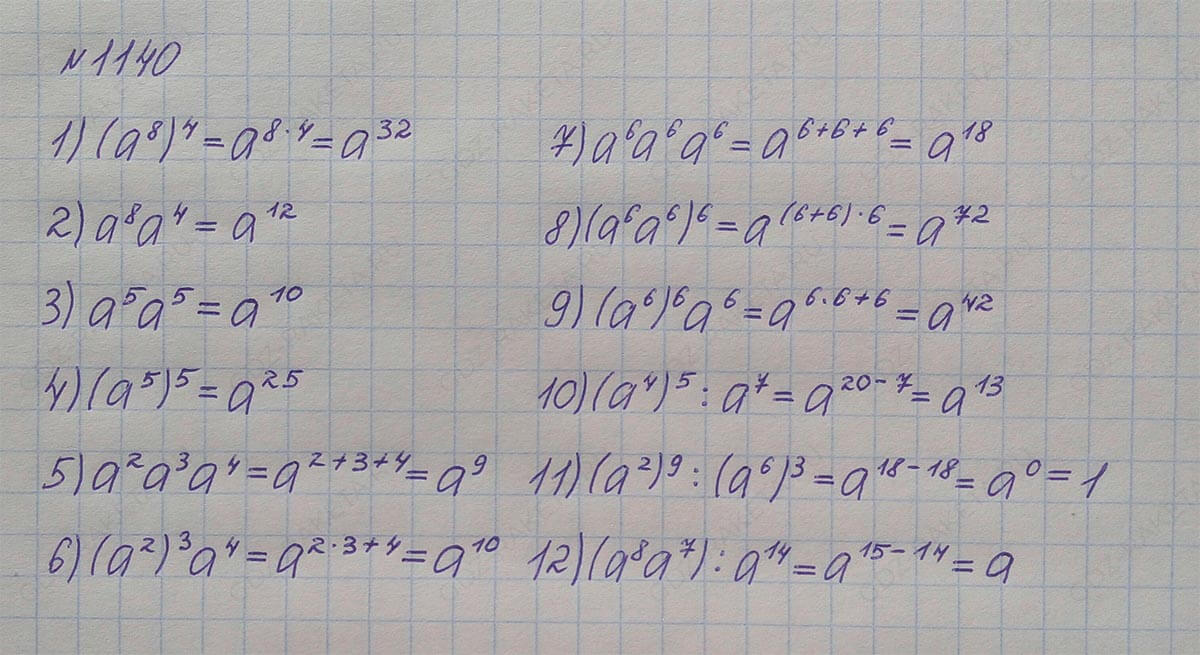 №1140
1) (a⁸)⁴ = a⁸·⁴ = a³²
2) a⁸a⁴ = a¹²
3) a⁵a⁵ = a¹⁰
4) (a⁵)⁵ = a²⁵
5) a²a³a⁴ = a²⁺³⁺⁴ = a⁹
6) (a²)³a⁴ = a²·³⁺⁴ = a¹⁰
7) a⁶a⁶a⁶ = a⁶⁺⁶⁺⁶ = a¹⁸
8) (a⁶a⁶)⁶ = a⁽⁶⁺⁶⁾·⁶ = a⁷²
9) (a⁶)⁶a⁶ = a⁶·⁶⁺⁶ = a⁴²
10) (a⁴)⁵ : a⁷ = a²⁰⁻⁷ = a¹³
11) (a²)⁹ : (a⁶)³ = a¹⁸⁻¹⁸ = a⁰ = 1
12) (a⁸a⁷) : a¹⁴ = a¹⁵⁻¹⁴ = a